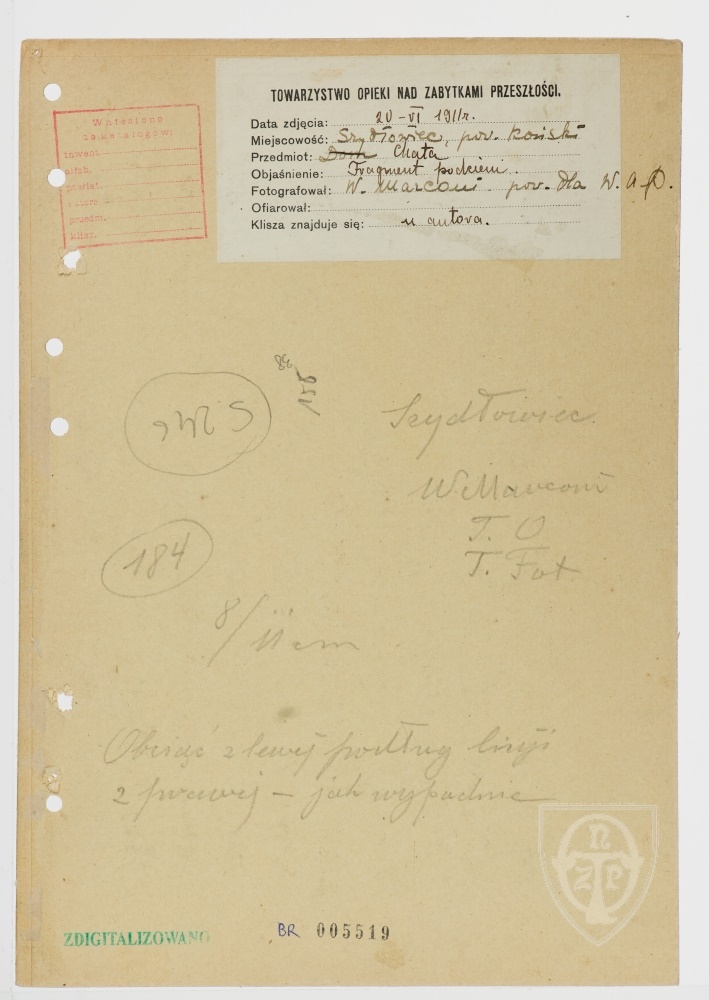 TOWARZYSTWO OPIEKI NAD ZABYTKAMI PRZESZŁOŚCI.
Data zdjęcia: 20-VI 1911r.
Miejscowość: Szydłowiec, pow. koński
Przedmiot: Dom Chata
Objaśnienie: Fragment podcieni
Fotografował: W. Marconi pow. dla W.
Ofiarował:
Klisza znajduje się: u autora.
Wniesiono
do katalogów:
inwent.
powiat.
autora
przedm.
klisz.
158
Szydłowiec.
W. Marconi
T. O
T. Fot.
184
8/11 cm
Obciąć z lewej podług linji
z prawej – jak wypadnie
TONZP
ZDIGITALIZOWANO
BR 005519